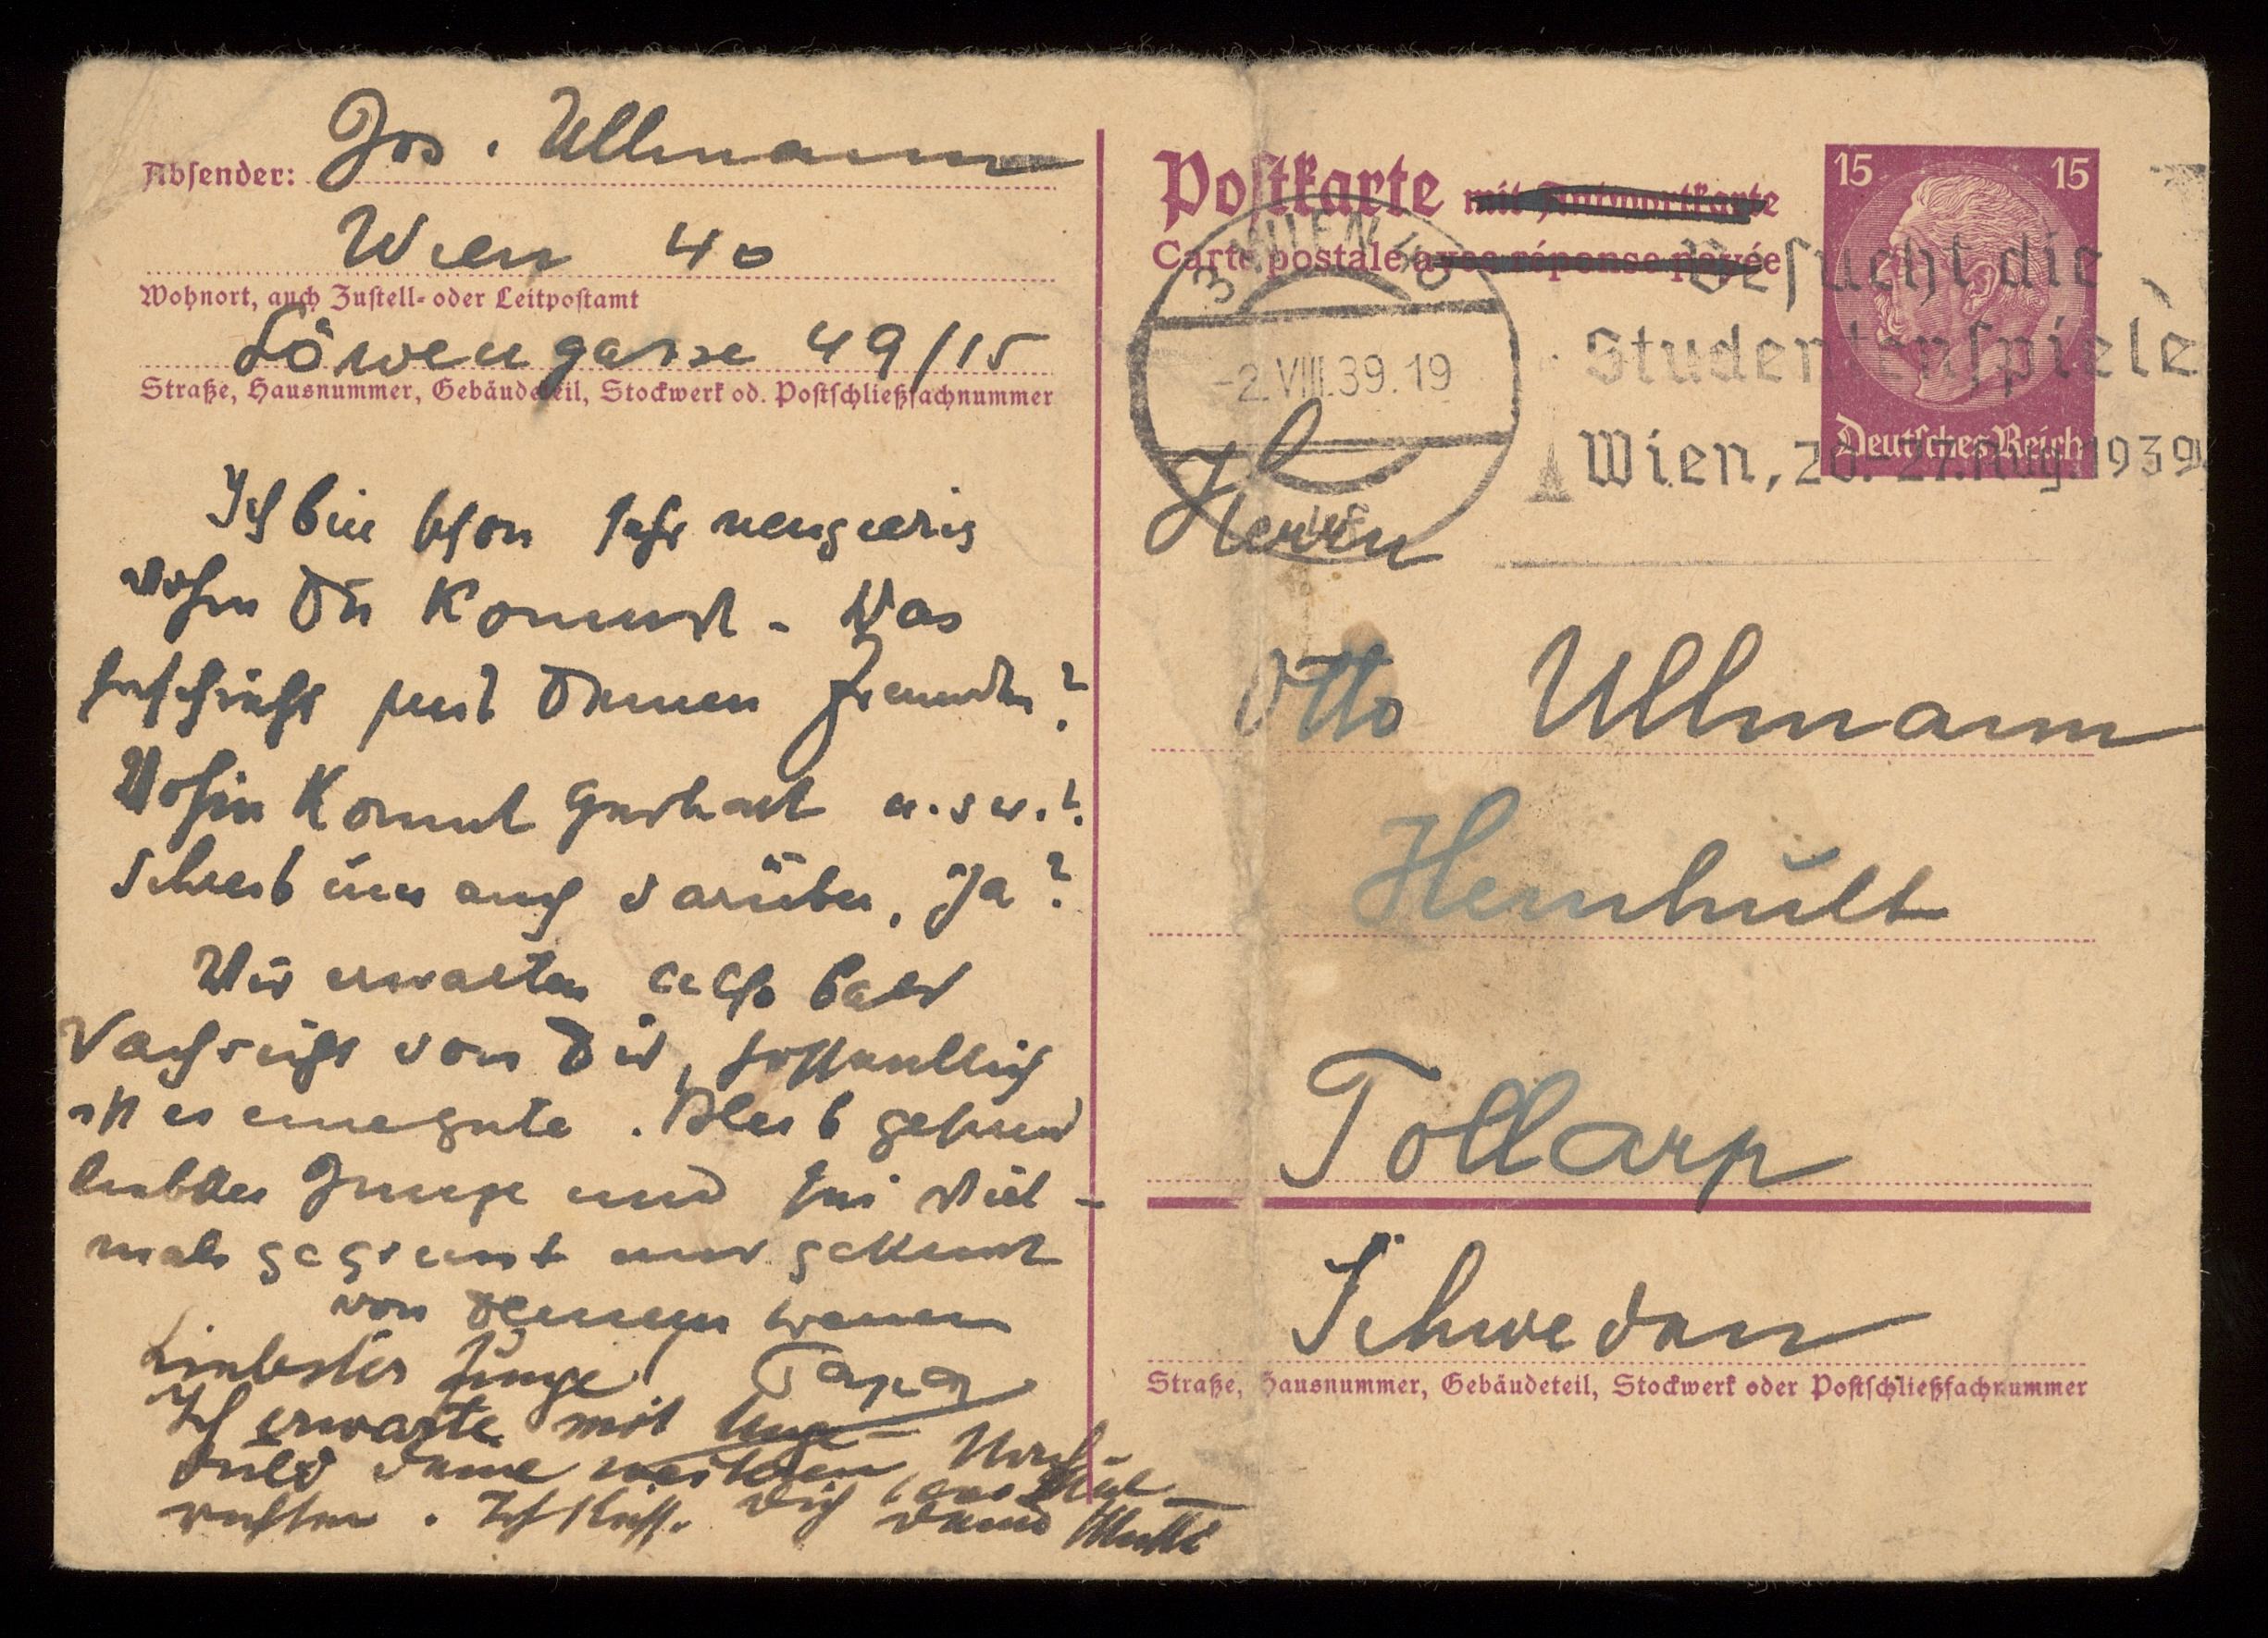 Absender: Jos. Ullmann
Wien 40
Wohnort, auch Zustell- oder Leitpostamt
Löwengasse 49/15
Straße, Hausnummer, Gebäudeteil, Stockwerk od. Postschließfachnummer
Ich bin schon sehr neugierig
wohin Du kommst - Was
geschieht mit Deinen Freunden?
Wohin kommt u.s.w.?
Schreib uns auch darüber, Ja?
Wir erwarten also bald
Nachricht von Dir, hoffentlich
ist es eine gute. Bleib gesund
liebster Junge und sei viel-
mals gegrüsst und geküsst
von Deinem treuen
Papa
Liebster Junge!
Ich erwarte mit Unge-
duld Deine weiteren Nach-
richten. Ich küsse Dich Deine Mutti
Postkarte mit Antwortkarte
Carte postale avec réponse payée
15 15
Deutsches Reich
3 WIEN 40
-2.VIII.39.19
Besucht die
Studentenspiele
Wien, 20.-27. Aug. 1939
Herrn
Otto Ullmann
Hemhult
Tollarp
Schweden
Straße, Hausnummer, Gebäudeteil, Stockwerk oder Postschließfachnummer